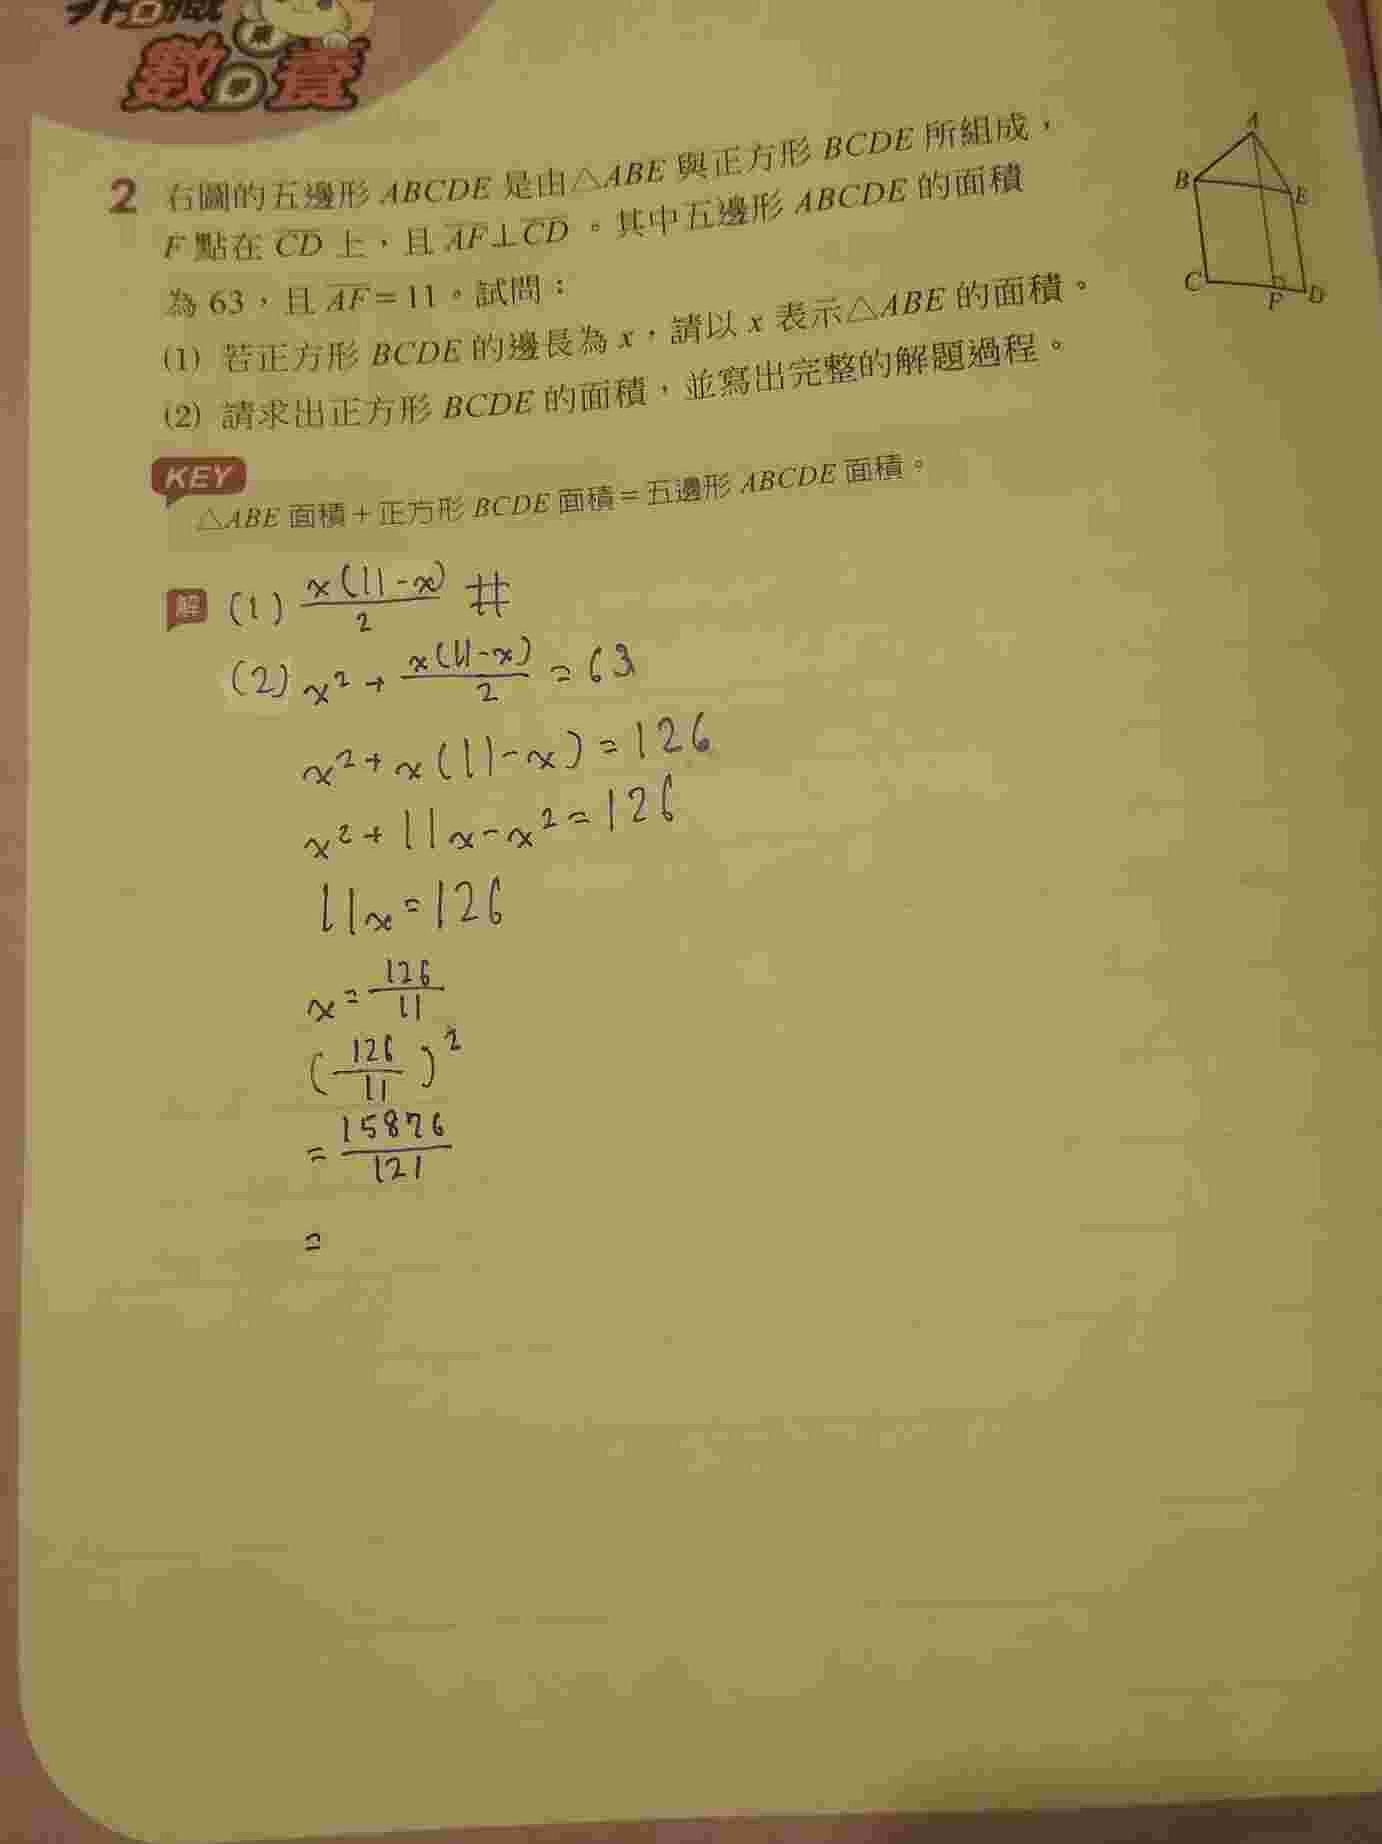 數 養
2 右圖的五邊形 ABCDE 是由△ABE 與正方形 BCDE 所組成，
F 點在 CD 上，且 AF⊥CD。其中五邊形 ABCDE 的面積
為 63，且 AF=11。試問：
(1) 若正方形 BCDE 的邊長為 x，請以 x 表示△ABE 的面積。
(2) 請求出正方形 BCDE 的面積，並寫出完整的解題過程。
A
B
E
C
F
D
KEY
△ABE 面積＋正方形 BCDE 面積＝五邊形 ABCDE 面積。
解 (1) x(11-x)/2 #
(2) x²+x(11-x)/2=63
x²+x(11-x)=126
x²+11x-x²=126
11x=126
x=126/11
(126/11)²
=15876/121
=